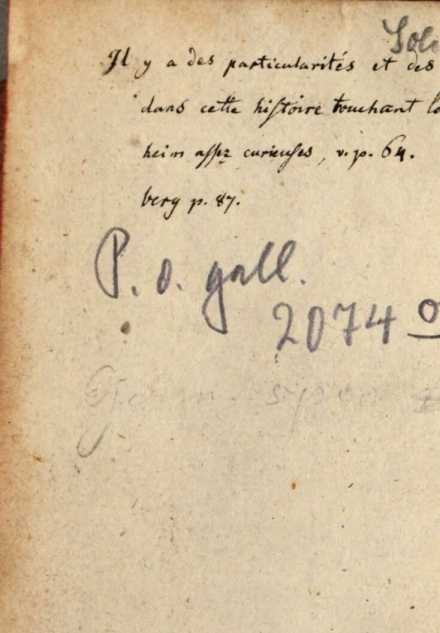 Il y a des particularités et des
dans cette hiſtoire touchant
heim aſſez curieuſes, v. p. 64.
berg p. 87.
P. o. gall.
2074 o